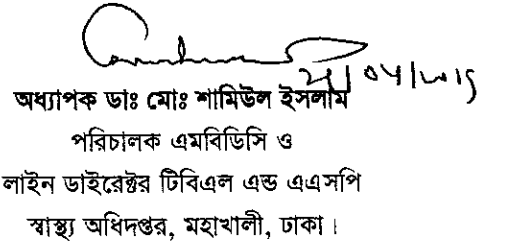 অধ্যাপক ডাঃ মোঃ শামিউল ইসলাম
পরিচালক এমবিডিসি ও
লাইন ডাইরেক্টর টিবিএল এন্ড এএসপি
স্বাস্থ্য অধিদপ্তর, মহাখালী, ঢাকা।